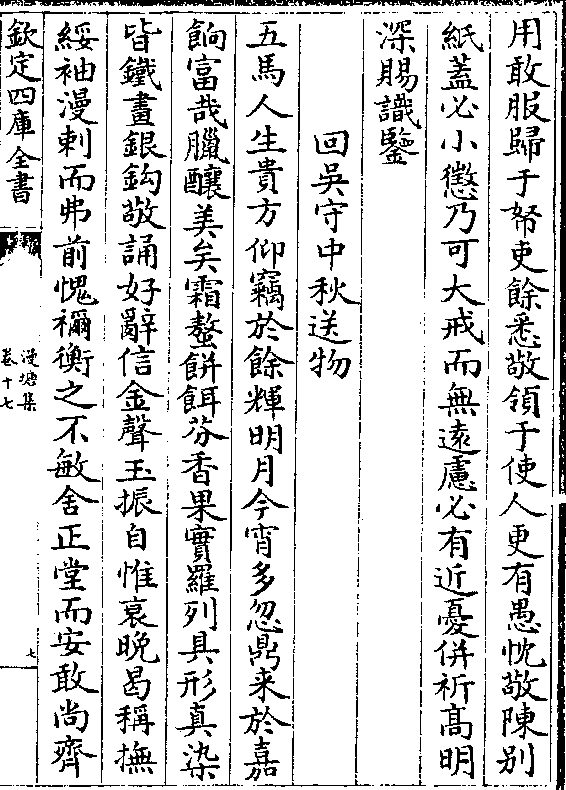 用敢服歸于帑吏餘悉敬領于使人更有愚忱敬陳别
紙蓋必小懲乃可大戒而無遠慮必有近憂併祈髙明
深賜識鑒
回吳守中秋送物
五馬人生貴方仰竊於餘輝明月今宵多忽鼎来於嘉
餉富哉臘釀美矣霜螯餅餌芬香果實羅列具形真染
皆鐵畫銀鈎敬誦好辭信金聲玉振自惟衰晚曷稱撫
綏袖漫刺而弗前愧禰衡之不敏舍正堂而安敢尚齊
欽定四庫全書
漫塘集
卷十七
七